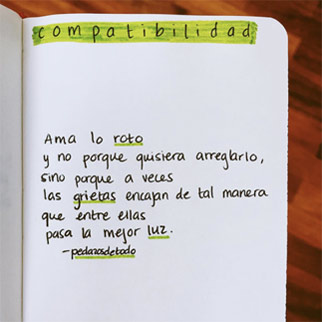 compatibilidad
Ama lo roto
y no porque quisiera arreglarlo,
sino porque a veces
las grietas encajan de tal manera
que entre ellas
pasa la mejor luz.
-pedazosdetodo